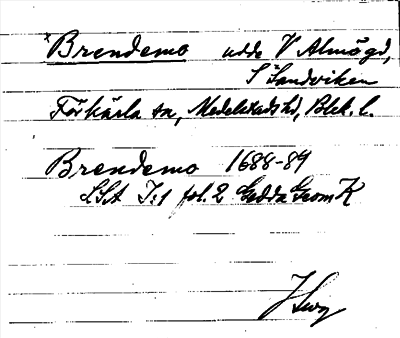 *Brendemo udde V Almö gd,
S Sandviken
Förkärla sn, Medelstads hd, Blek. l.
Brendemo 1688-89
LSA I:1 fol. 2 Gedda Geom K